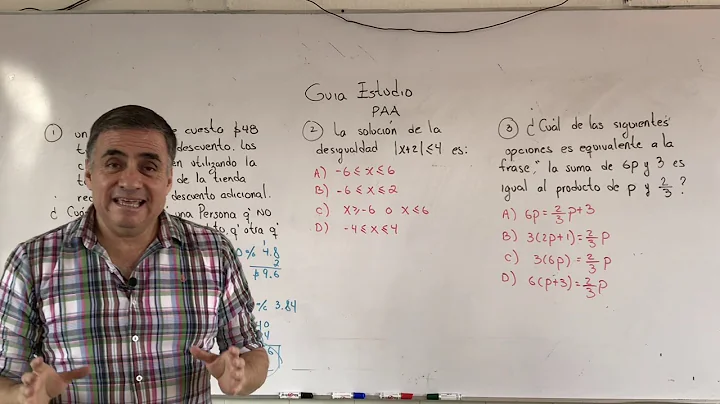 Guia Estudio
PAA
① un cuesta $48
descuento. Los
en utilizando la
de la tienda
descuento adicional.
¿ una Persona q' NO
q' otra q'
% 4.8
2
$9.6
% 3.84
② La solución de la
desigualdad |x+2| ≤ 4 es:
A) -6 ≤ x ≤ 6
B) -6 ≤ x ≤ 2
C) x ≥ -6 o x ≤ 6
D) -4 ≤ x ≤ 4
③ ¿Cuál de las siguientes
opciones es equivalente a la
frase," la suma de 6p y 3 es
igual al producto de p y 2/3 ?
A) 6p = 2/3 p+3
B) 3(2p+1) = 2/3 p
C) 3(6p) = 2/3 p
D) 6(p+3) = 2/3 p